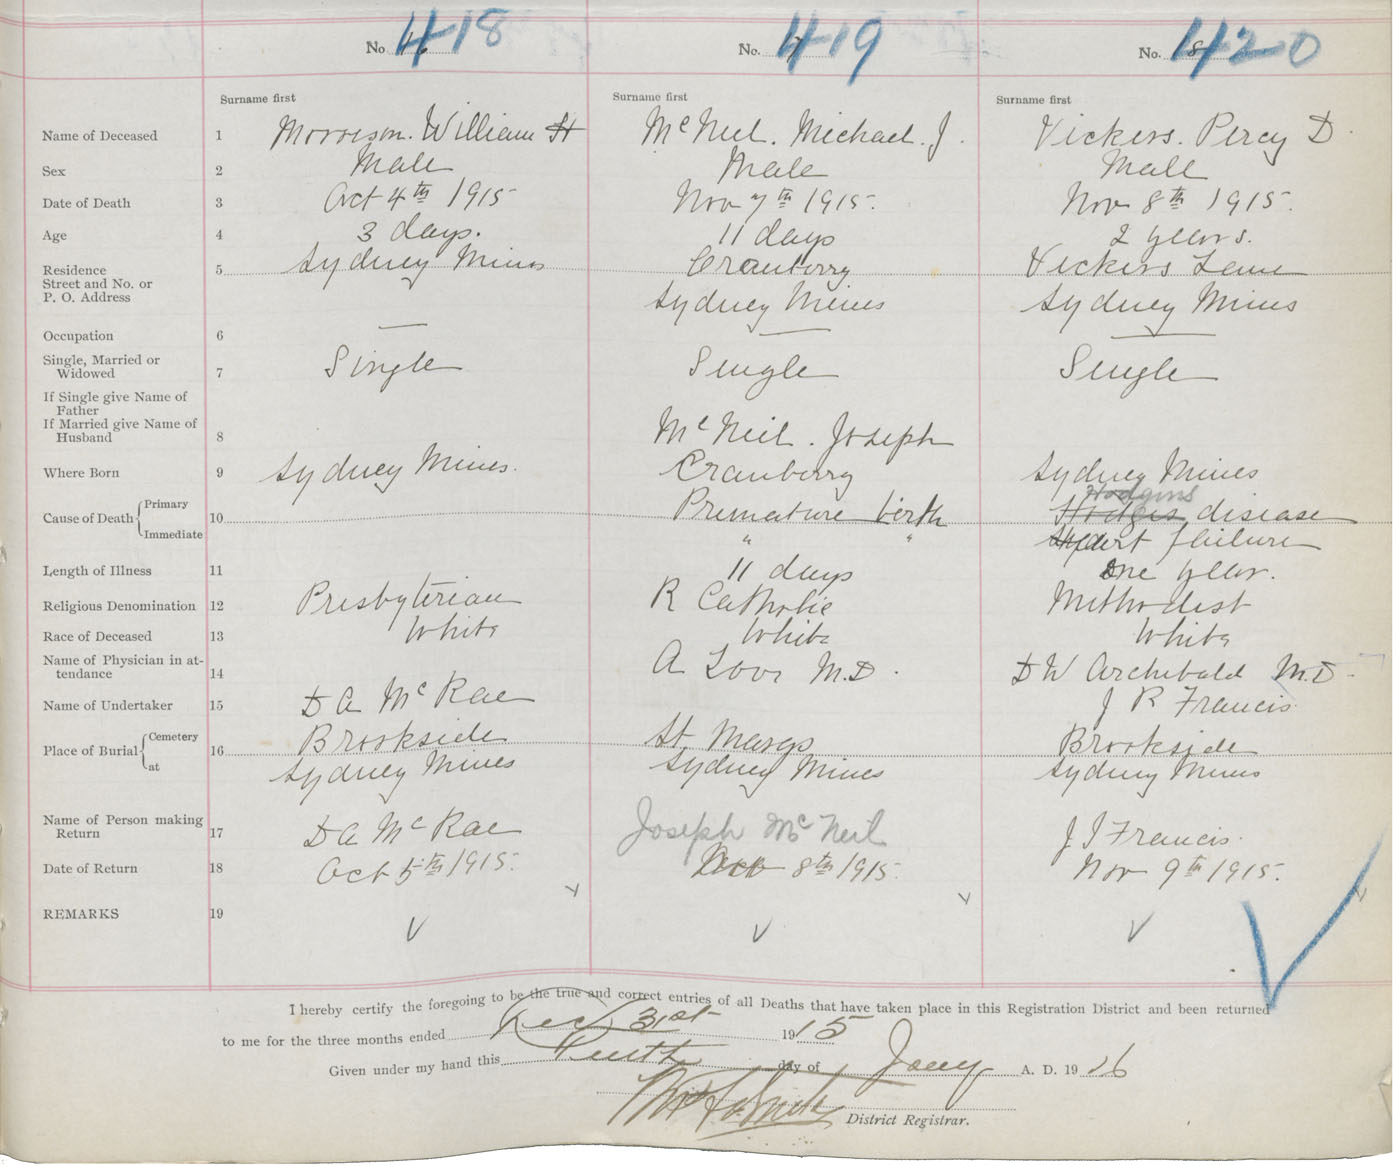 No. 16 418 No. 7 419 No. 8 420
Surname first Surname first Surname first
Name of Deceased 1 Morrison. William H McNeil. Michael. J. Vickers. Percy D.
Sex 2 Male Male Male
Date of Death 3 Oct 4th 1915 Nov 7th 1915. Nov 8th 1915.
Age 4 3 days. 11 days 2 years.
Residence 5 Sydney Mines Cranberry Vickers Lane
Street and No. or
P. O. Address Sydney Mines Sydney Mines
Occupation 6 — — —
Single, Married or
Widowed 7 Single Single Single
If Single give Name of
Father
If Married give Name of
Husband 8 McNeil. Joseph
Where Born 9 Sydney Mines. Cranberry Sydney Mines
Hodgins
Cause of Death { Primary 10 Premature birth Hodges disease
Immediate " " Heart failure
Length of Illness 11 11 days One year.
Religious Denomination 12 Presbyterian R Catholic Methodist
Race of Deceased 13 White White White
Name of Physician in at-
tendance 14 A Loor M.D. D W Archibald M.D.
Name of Undertaker 15 D A McRae J R Francis
Place of Burial { Cemetery 16 Brookside St Marys Brookside
at Sydney Mines Sydney Mines Sydney Mines
Name of Person making
Return 17 D A McRae Joseph McNeil J J Francis.
Date of Return 18 Oct 5th 1915. Nov 8th 1915. Nov 9th 1915.
REMARKS 19
I hereby certify the foregoing to be the true and correct entries of all Deaths that have taken place in this Registration District and been returned
to me for the three months ended Dec 31st 1915
Given under my hand this Tenth day of Jany A. D. 1916
District Registrar.